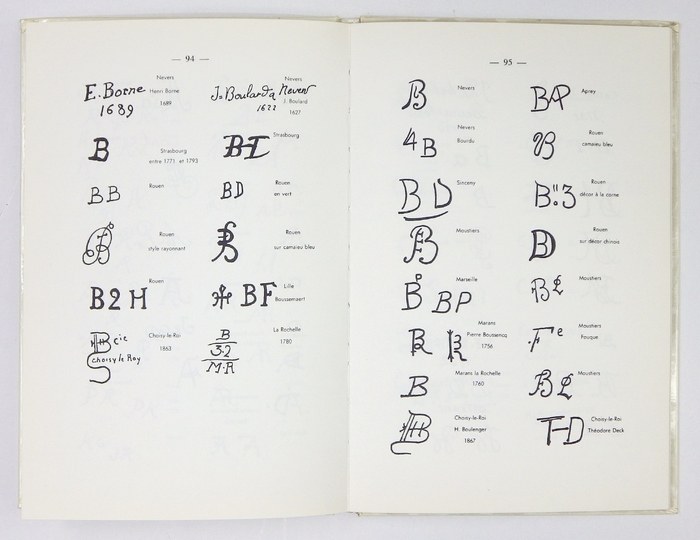 — 94 —
E. Borne
1689
Nevers
Henri Borne
1689
J. Boulard a Nevers
1622
Nevers
J. Boulard
1627
B
Strasbourg
entre 1771 et 1793
BH
Strasbourg
BB
Rouen
BD
Rouen
en vert
B
Rouen
style rayonnant
B
Rouen
sur camaieu bleu
B2H
Rouen
BF
Lille
Boussemaert
HB cie
choisy le Roy
Choisy-le-Roi
1863
B
32
M·R
La Rochelle
1780
— 95 —
B
Nevers
BAP
Aprey
4B
Nevers
Bourdu
B
Rouen
camaieu bleu
BD
Sinceny
B"3
Rouen
décor à la corne
B
Moustiers
D
Rouen
sur décor chinois
B BP
Marseille
Moustiers
R
Marans
Pierre Boussencq
1756
F e
Moustiers
Fouque
B
Marans la Rochelle
1760
Moustiers
HB
Choisy-le-Roi
H. Boulenger
1867
T-D
Choisy-le-Roi
Théodore Deck